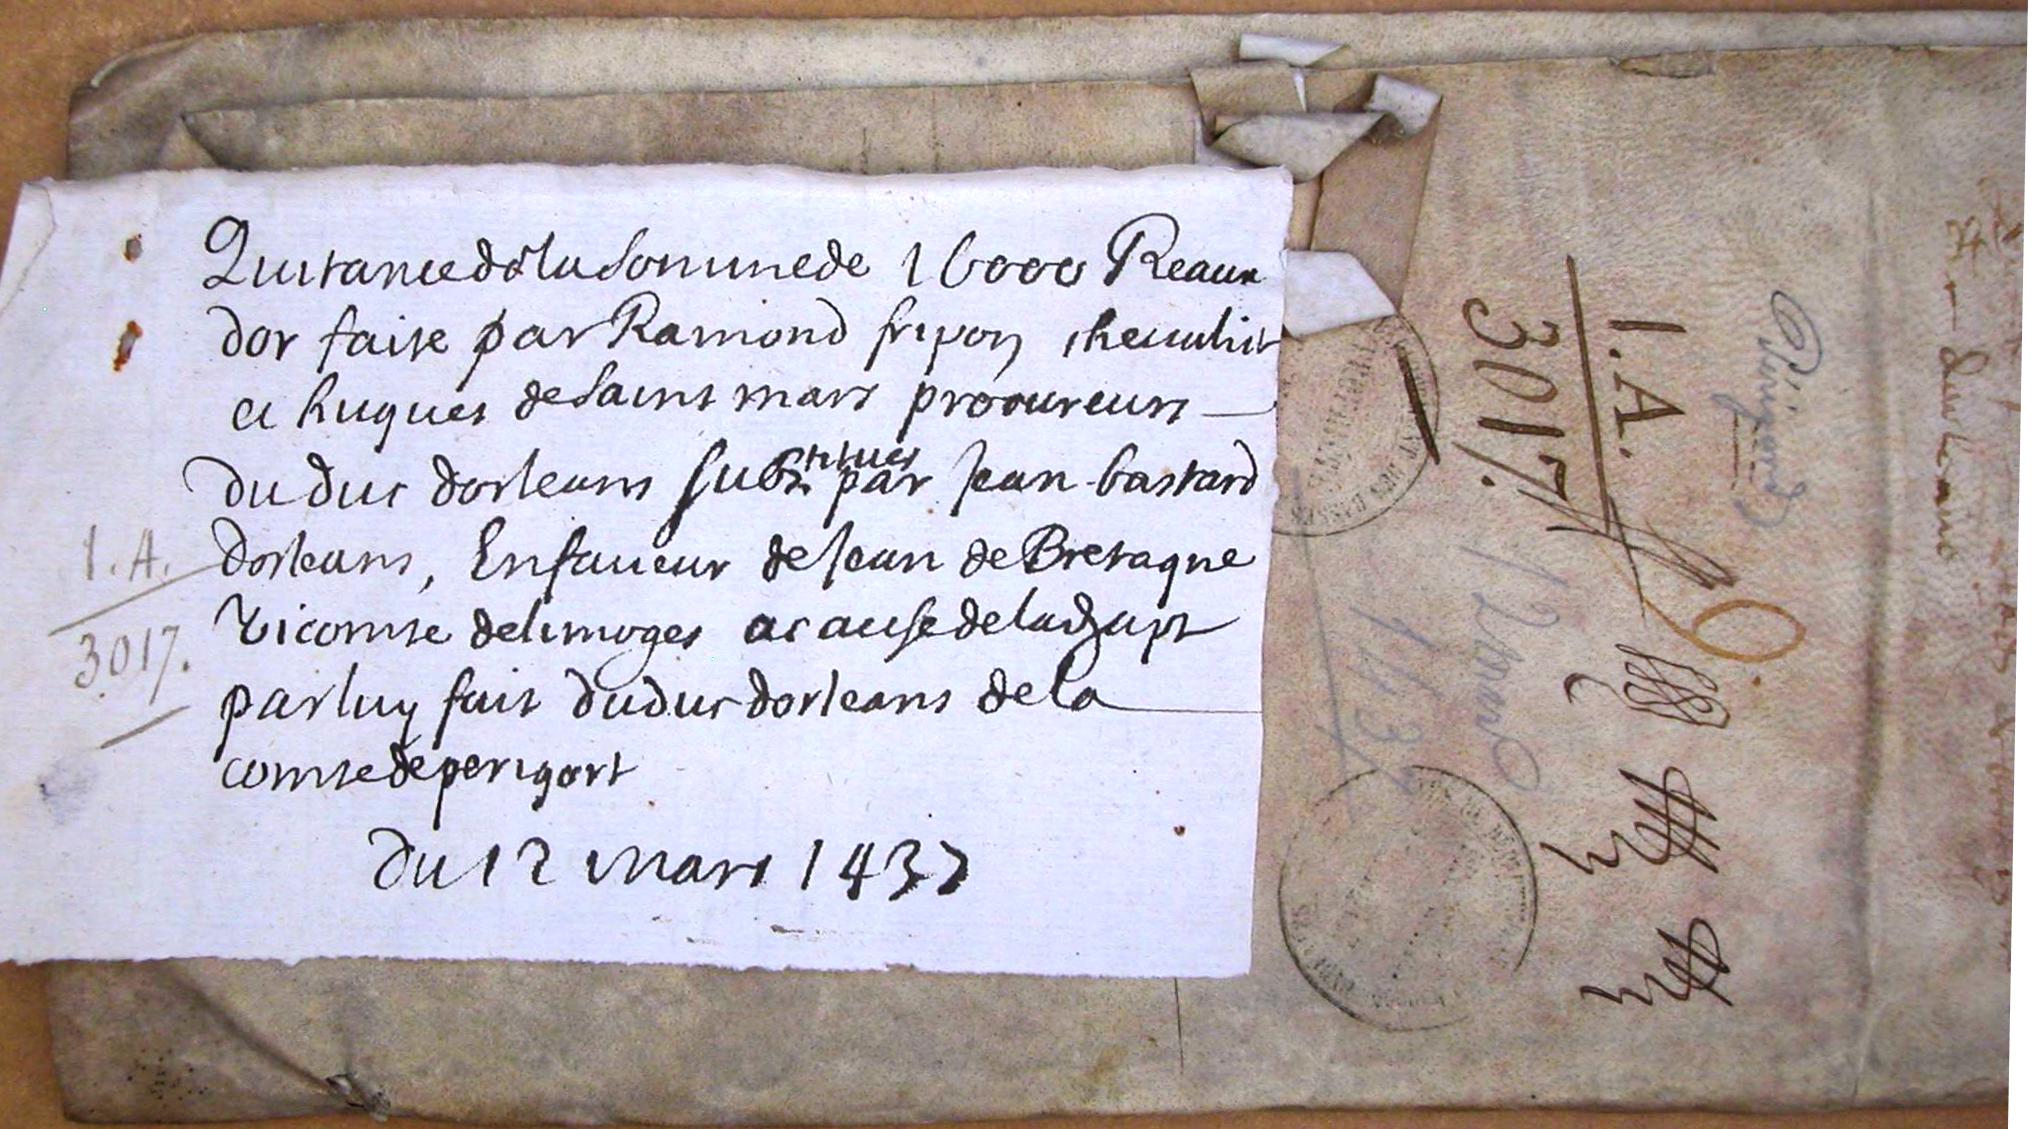 Quitance de la somme de 16000 Reaux
dor faite par Ramond fripon chevalier
et hugues de saint mars procureurs
du duc dorleans substitues par Jean bastard
dorleans, Enfaveur de Jean de Bretagne
Vicomte de limoges a cause de lachapt
par luy fait du duc dorleans de la
comte de perigort
du 12 mars 1437
1.A.
3017.
1.A.
3017.
Périgord
12 mars
1437
9.